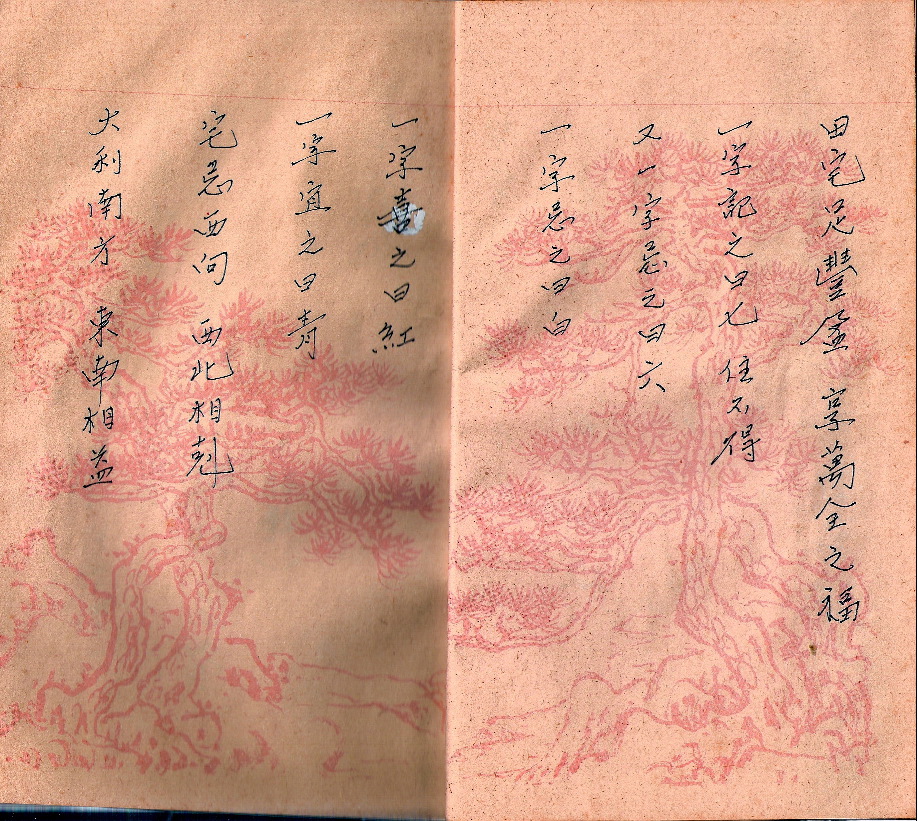 田宅足豐盈 享萬全之福
一字記之曰七 住不得
又一字忌之曰六
一字忌之曰白
一字喜之曰紅
一字宜之曰青
宅忌西向 西北相剋
大利南方 東南相益